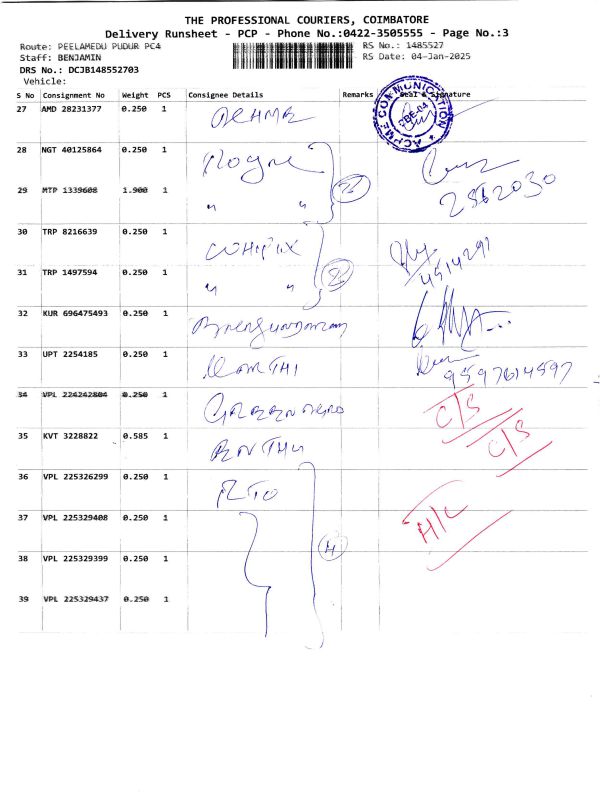 THE PROFESSIONAL COURIERS, COIMBATORE
Delivery Runsheet - PCP - Phone No.:0422-3505555 - Page No.:3
Route: PEELAMEDU PUDUR PC4
Staff: BENJAMIN
DRS No.: DCJB148552703
Vehicle:
RS No.: 1485527
RS Date: 04-Jan-2025
S No Consignment No Weight PCS Consignee Details Remarks Seal & Signature
27 AMD 28231377 0.250 1
28 NGT 40125864 0.250 1
29 MTP 1339608 1.900 1 " "
2562030
30 TRP 8216639 0.250 1
31 TRP 1497594 0.250 1 " "
4514291
32 KUR 696475493 0.250 1
33 UPT 2254185 0.250 1
9597614597
34 VPL 224242804 0.250 1 C/S
35 KVT 3228822 0.585 1 C/S
36 VPL 225326299 0.250 1 RTO
37 VPL 225329408 0.250 1 H/C
38 VPL 225329399 0.250 1
39 VPL 225329437 0.250 1